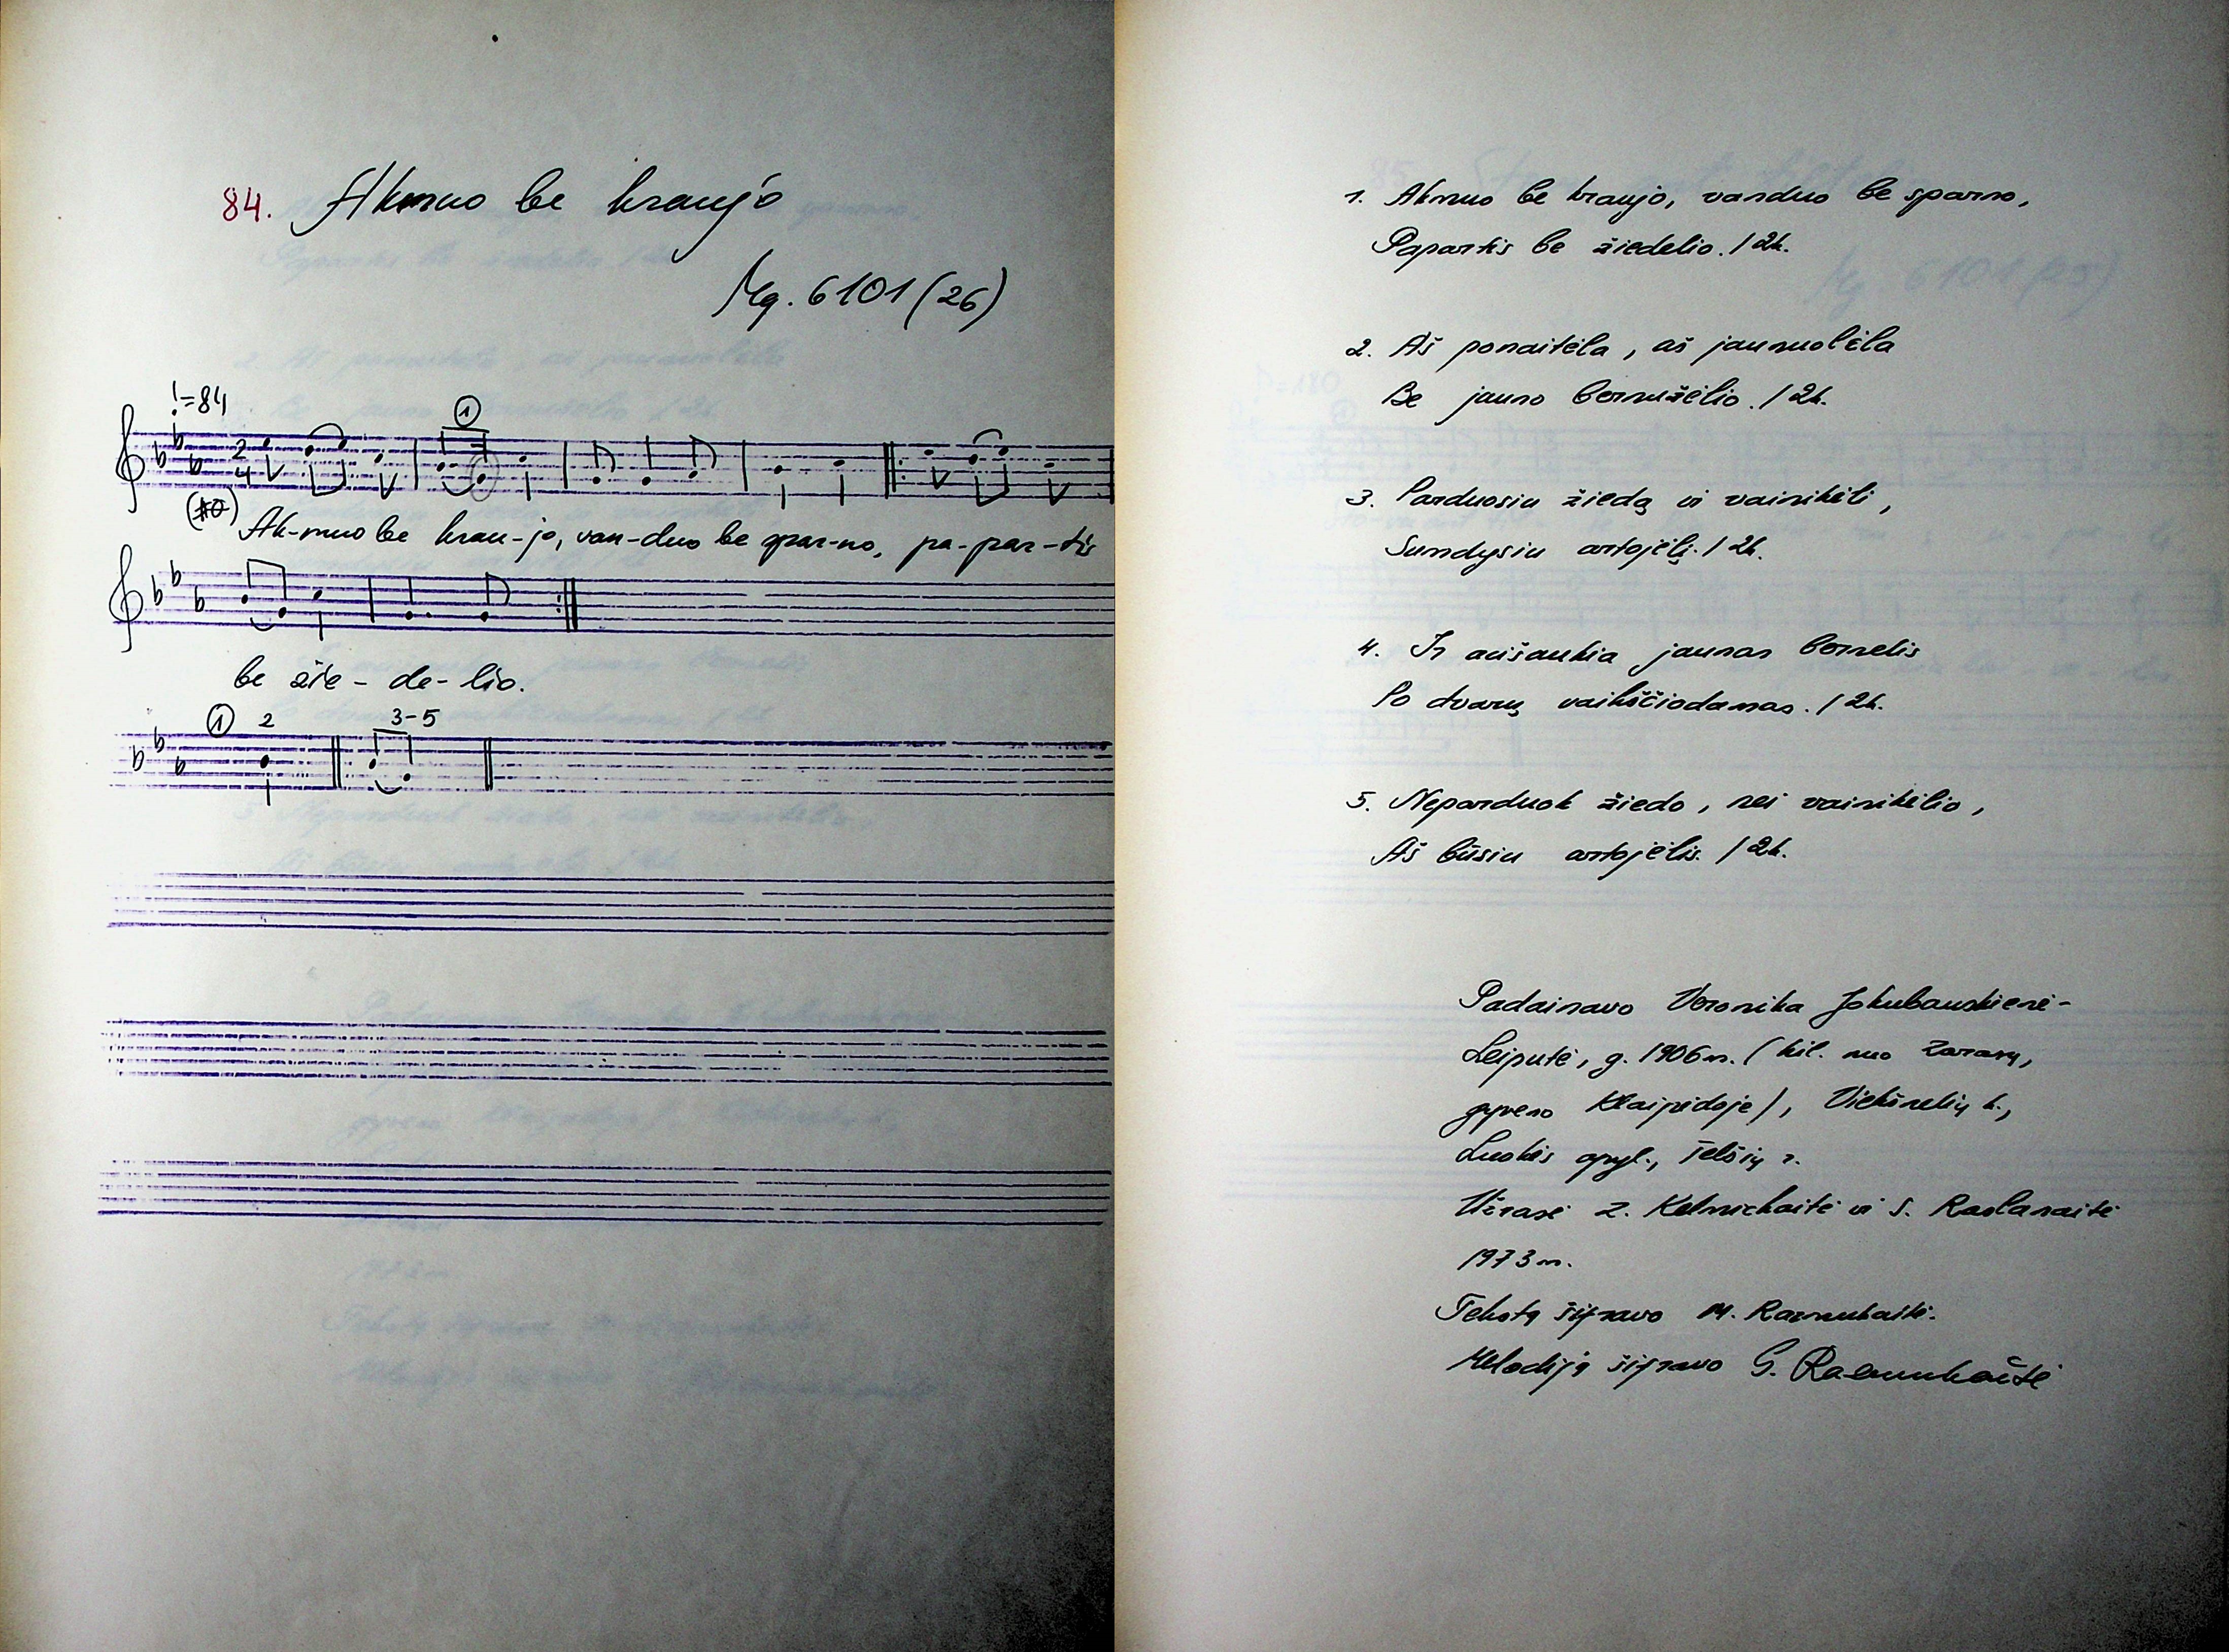 84. Akmuo be kraujo
Mg. 6101 (26)
=84
①
2
4
Ak-muo be krau-jo, van-duo be spar-no, pa-par-tis
be žie-de-lio.
① 2 3-5
1. Akmuo be kraujo, vanduo be sparno,
Papartis be žiedelio. / 2k.
2. Aš ponaitėla, aš jaunuolėla
Be jauno bernužėlio. / 2k.
3. Parduosiu žiedą ir vainikėlį,
Samdysiu artojėlį. / 2k.
4. Ir atišaukia jaunas bernelis
Po dvarą vaikščiodamas. / 2k.
5. Neparduok žiedo, nei vainikėlio,
Aš būsiu artojėlis. / 2k.
Padainavo Veronika Jokubauskienė-
Leiputė, g. 1906 m. (kil. nuo Zarasų,
gyveno Klaipėdoje), Viekšnelių k.,
Luokės apyl., Telšių r.
Užrašė Z. Kelmickaitė ir S. Raslanaitė
1973 m.
Tekstą šifravo M. Razmukaitė.
Melodiją šifravo G. Razmukaitė